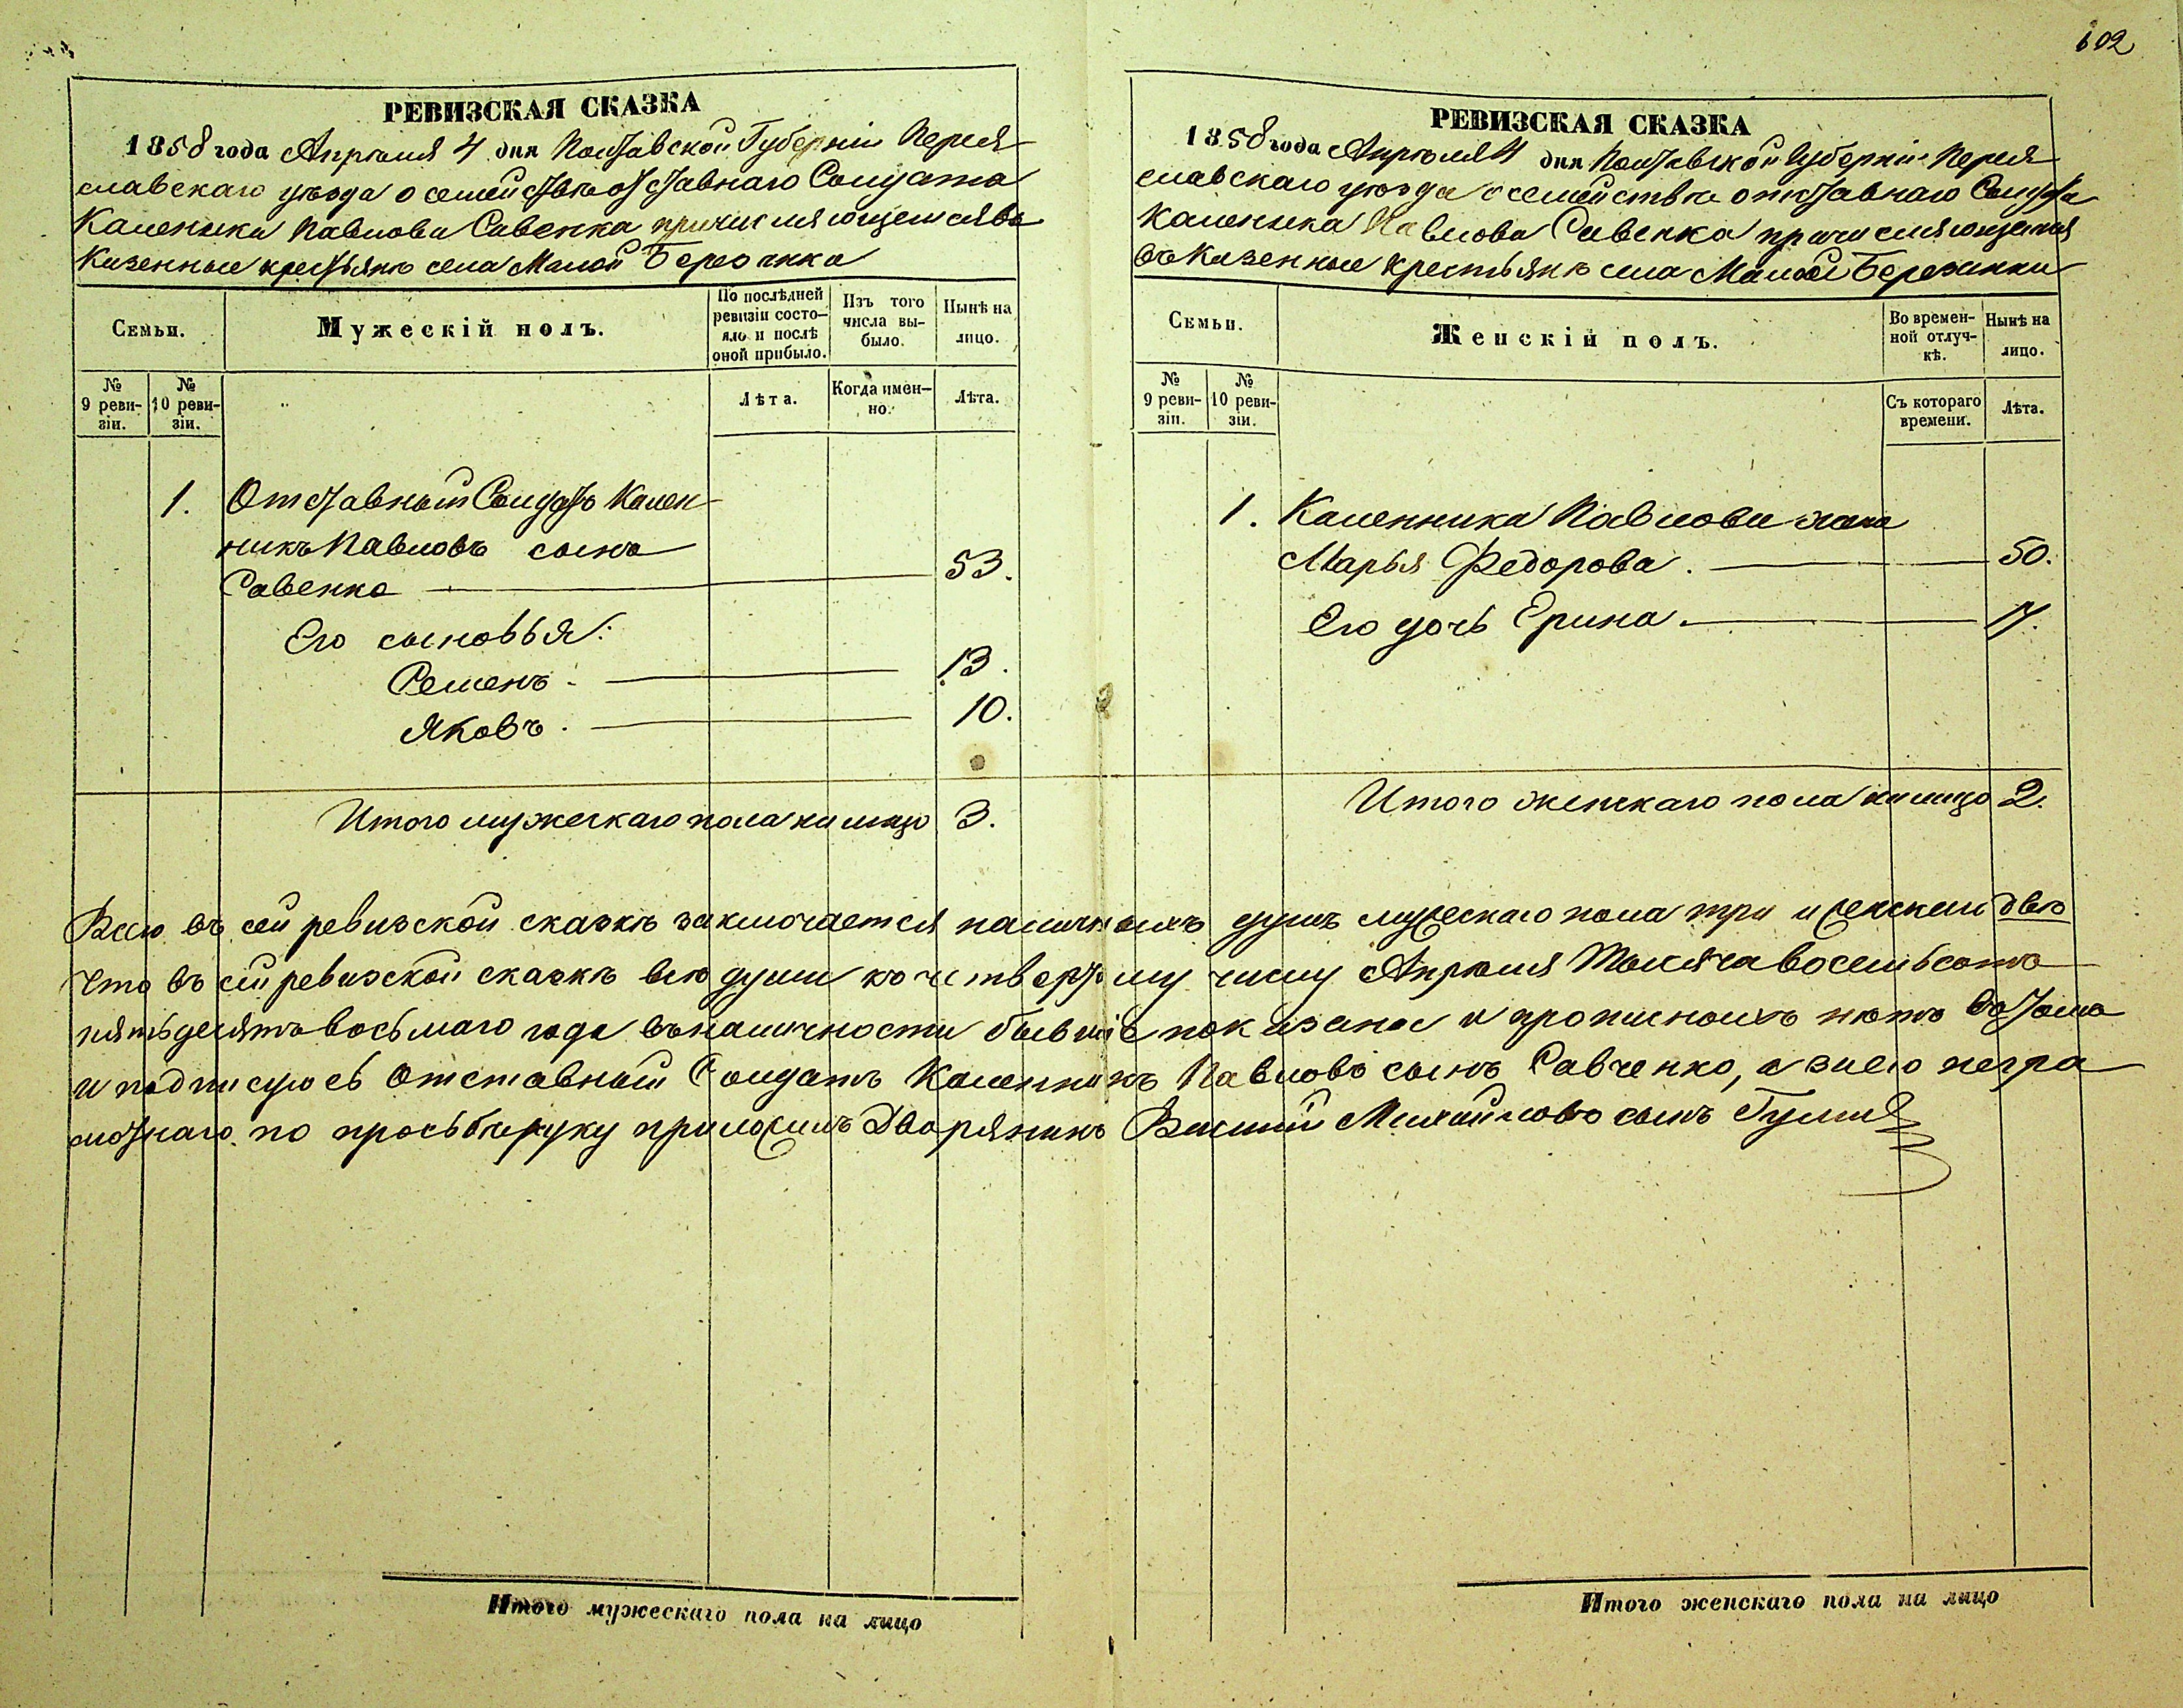 602
РЕВИЗСКАЯ СКАЗКА
1858 года Апрѣля 4 дня Полтавской Губерніи Перея
славскаго уѣзда о семействѣ отставнаго Солдата
Каленика Павлова Савенка причисляющемся въ
Казенные крестьянѣ села Малой Березанки
Семьи.
Мужескій полъ.
По послѣдней
ревизіи состо-
яло и послѣ
оной прибыло.
Изъ того
числа вы-
было.
Нынѣ на
лицо.
№
9 реви-
зіи.
№
10 реви-
зіи.
Лѣта.
Когда имен-
но.
Лѣта.
1. Отставный Солдатъ Кален
никъ Павловъ сынъ
Савенко 53.
Его сыновья:
Семенъ. 13.
Яковъ. 10.
Итого мужескаго пола на лицо 3.
РЕВИЗСКАЯ СКАЗКА
1858 года Апрѣля 4 дня Полтавской Губерніи Перея
славскаго уѣзда о семействѣ отставнаго Солдата
Каленика Павлова Савенка причисляющемся
въ Казенные крестьянѣ села Малой Березанки
Семьи.
Женскій полъ.
Во времен-
ной отлуч-
кѣ.
Нынѣ на
лицо.
№
9 реви-
зіи.
№
10 реви-
зіи.
Съ котораго
времени.
Лѣта.
1. Каленника Павлова жена
Марья Федорова. 50.
Его дочь Ерина. 17.
Итого женскаго пола на лицо 2.
Всего въ сей ревизской сказкѣ заключается наличныхъ душъ мужескаго пола три и женскаго двѣ
Что въ сей ревизской сказкѣ всѣ души къ четвертому числу Апрѣля Тысяча восемьсотъ
пятьдесятъ восьмаго года въ наличности бывшіе показаны и прописныхъ нѣтъ въ томъ
и подписуюсь Отставный Солдатъ Каленникъ Павловъ сынъ Савченко, а вмѣсто негра
мотнаго по просьбѣ руку приложилъ Дворянинъ Михайловъ сынъ
Итого мужескаго пола на лицо
Итого женскаго пола на лицо